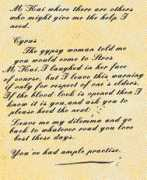 Mr Kiri where there are others
who might give me the help I
need.
Cyrus
The gypsy woman told me
you would come to
Mr Kiri. I laughed in her face
of course, but I leave this warning
if only for respect of one's elders.
If the blood lock is opened then I
know it is you, and ask you to
please heed the next:
Leave me my dilemma and go
back to whatever road you love
best these days.
You've had ample practise.